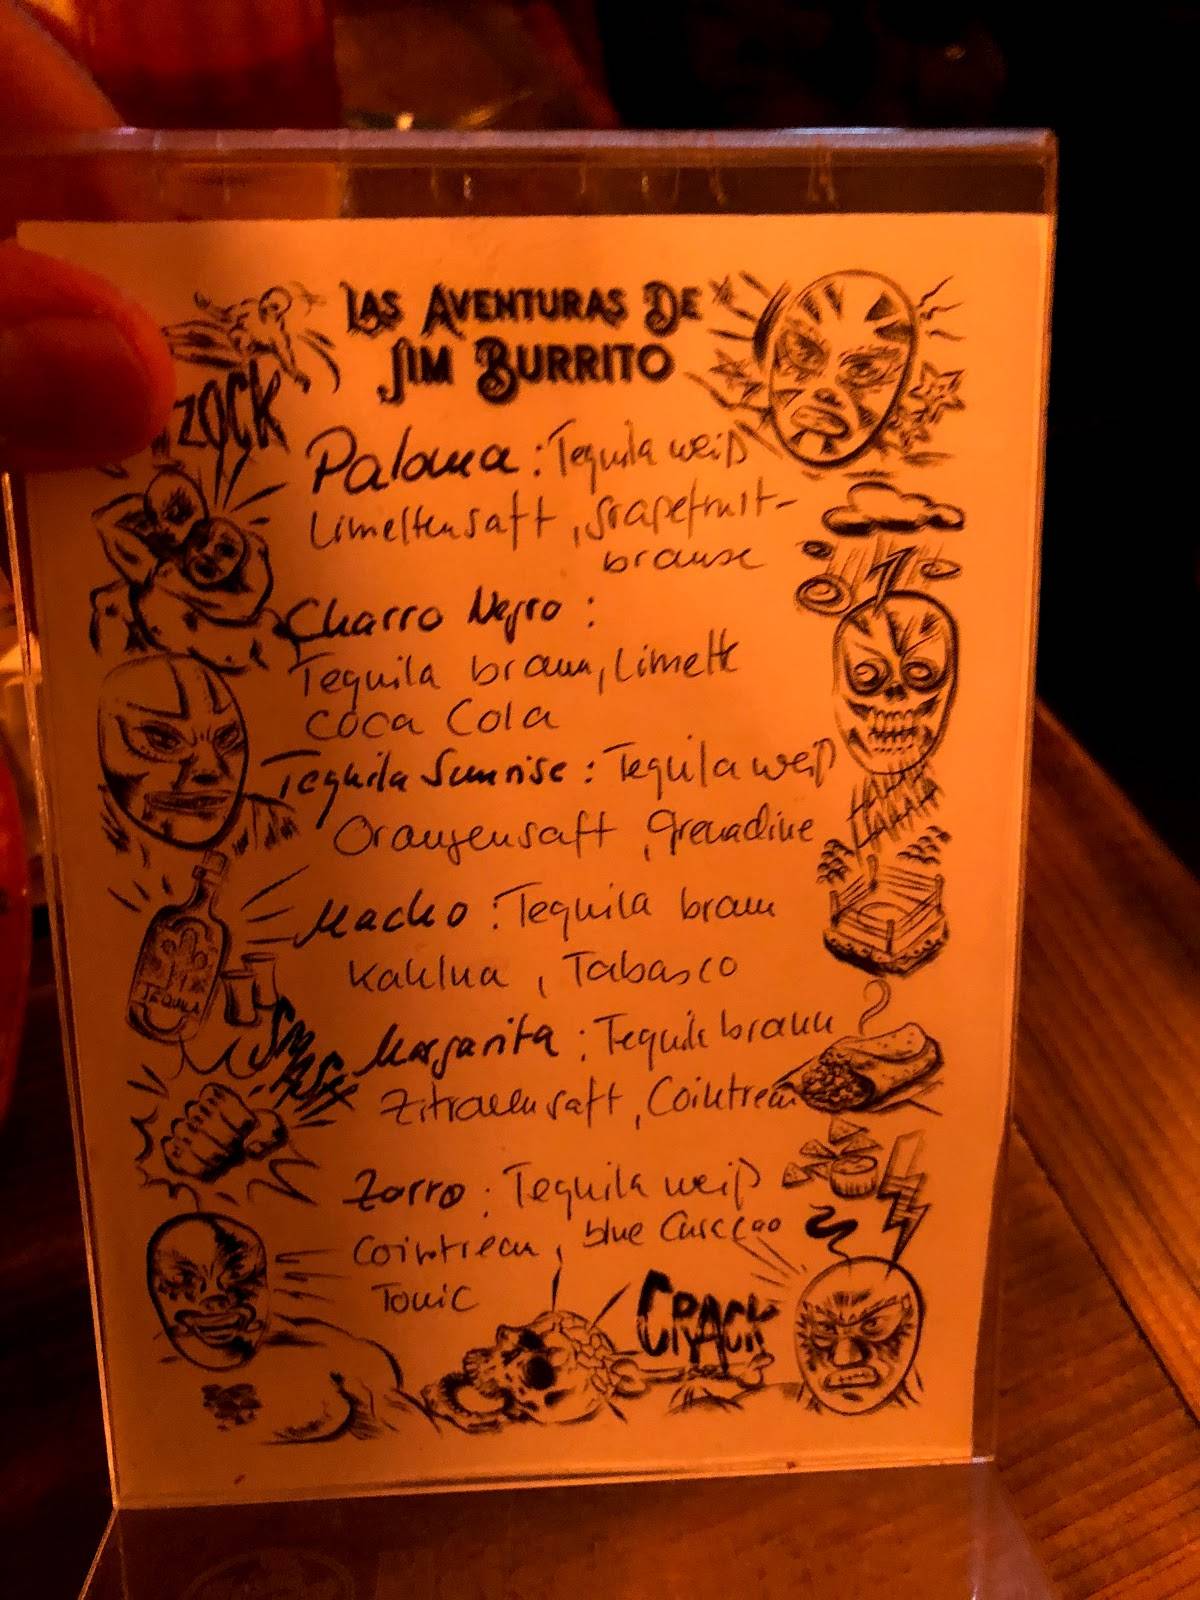 Las Aventuras De
Jim Burrito
ZOCK
Paloma : Tequila weiß
Limettensaft , Grapefruit-
brause
Charro Negro :
Tequila braun, Limette
Coca Cola
Tequila Sunrise : Tequila weiß
Orangensaft , Grenadine
Macho : Tequila braun
Kahlua , Tabasco
TEQUILA
Margarita : Tequila braun
Zitronensaft , Cointreau
Zorro : Tequila weiß
Cointreau , blue Curccao
Tonic
CRACK